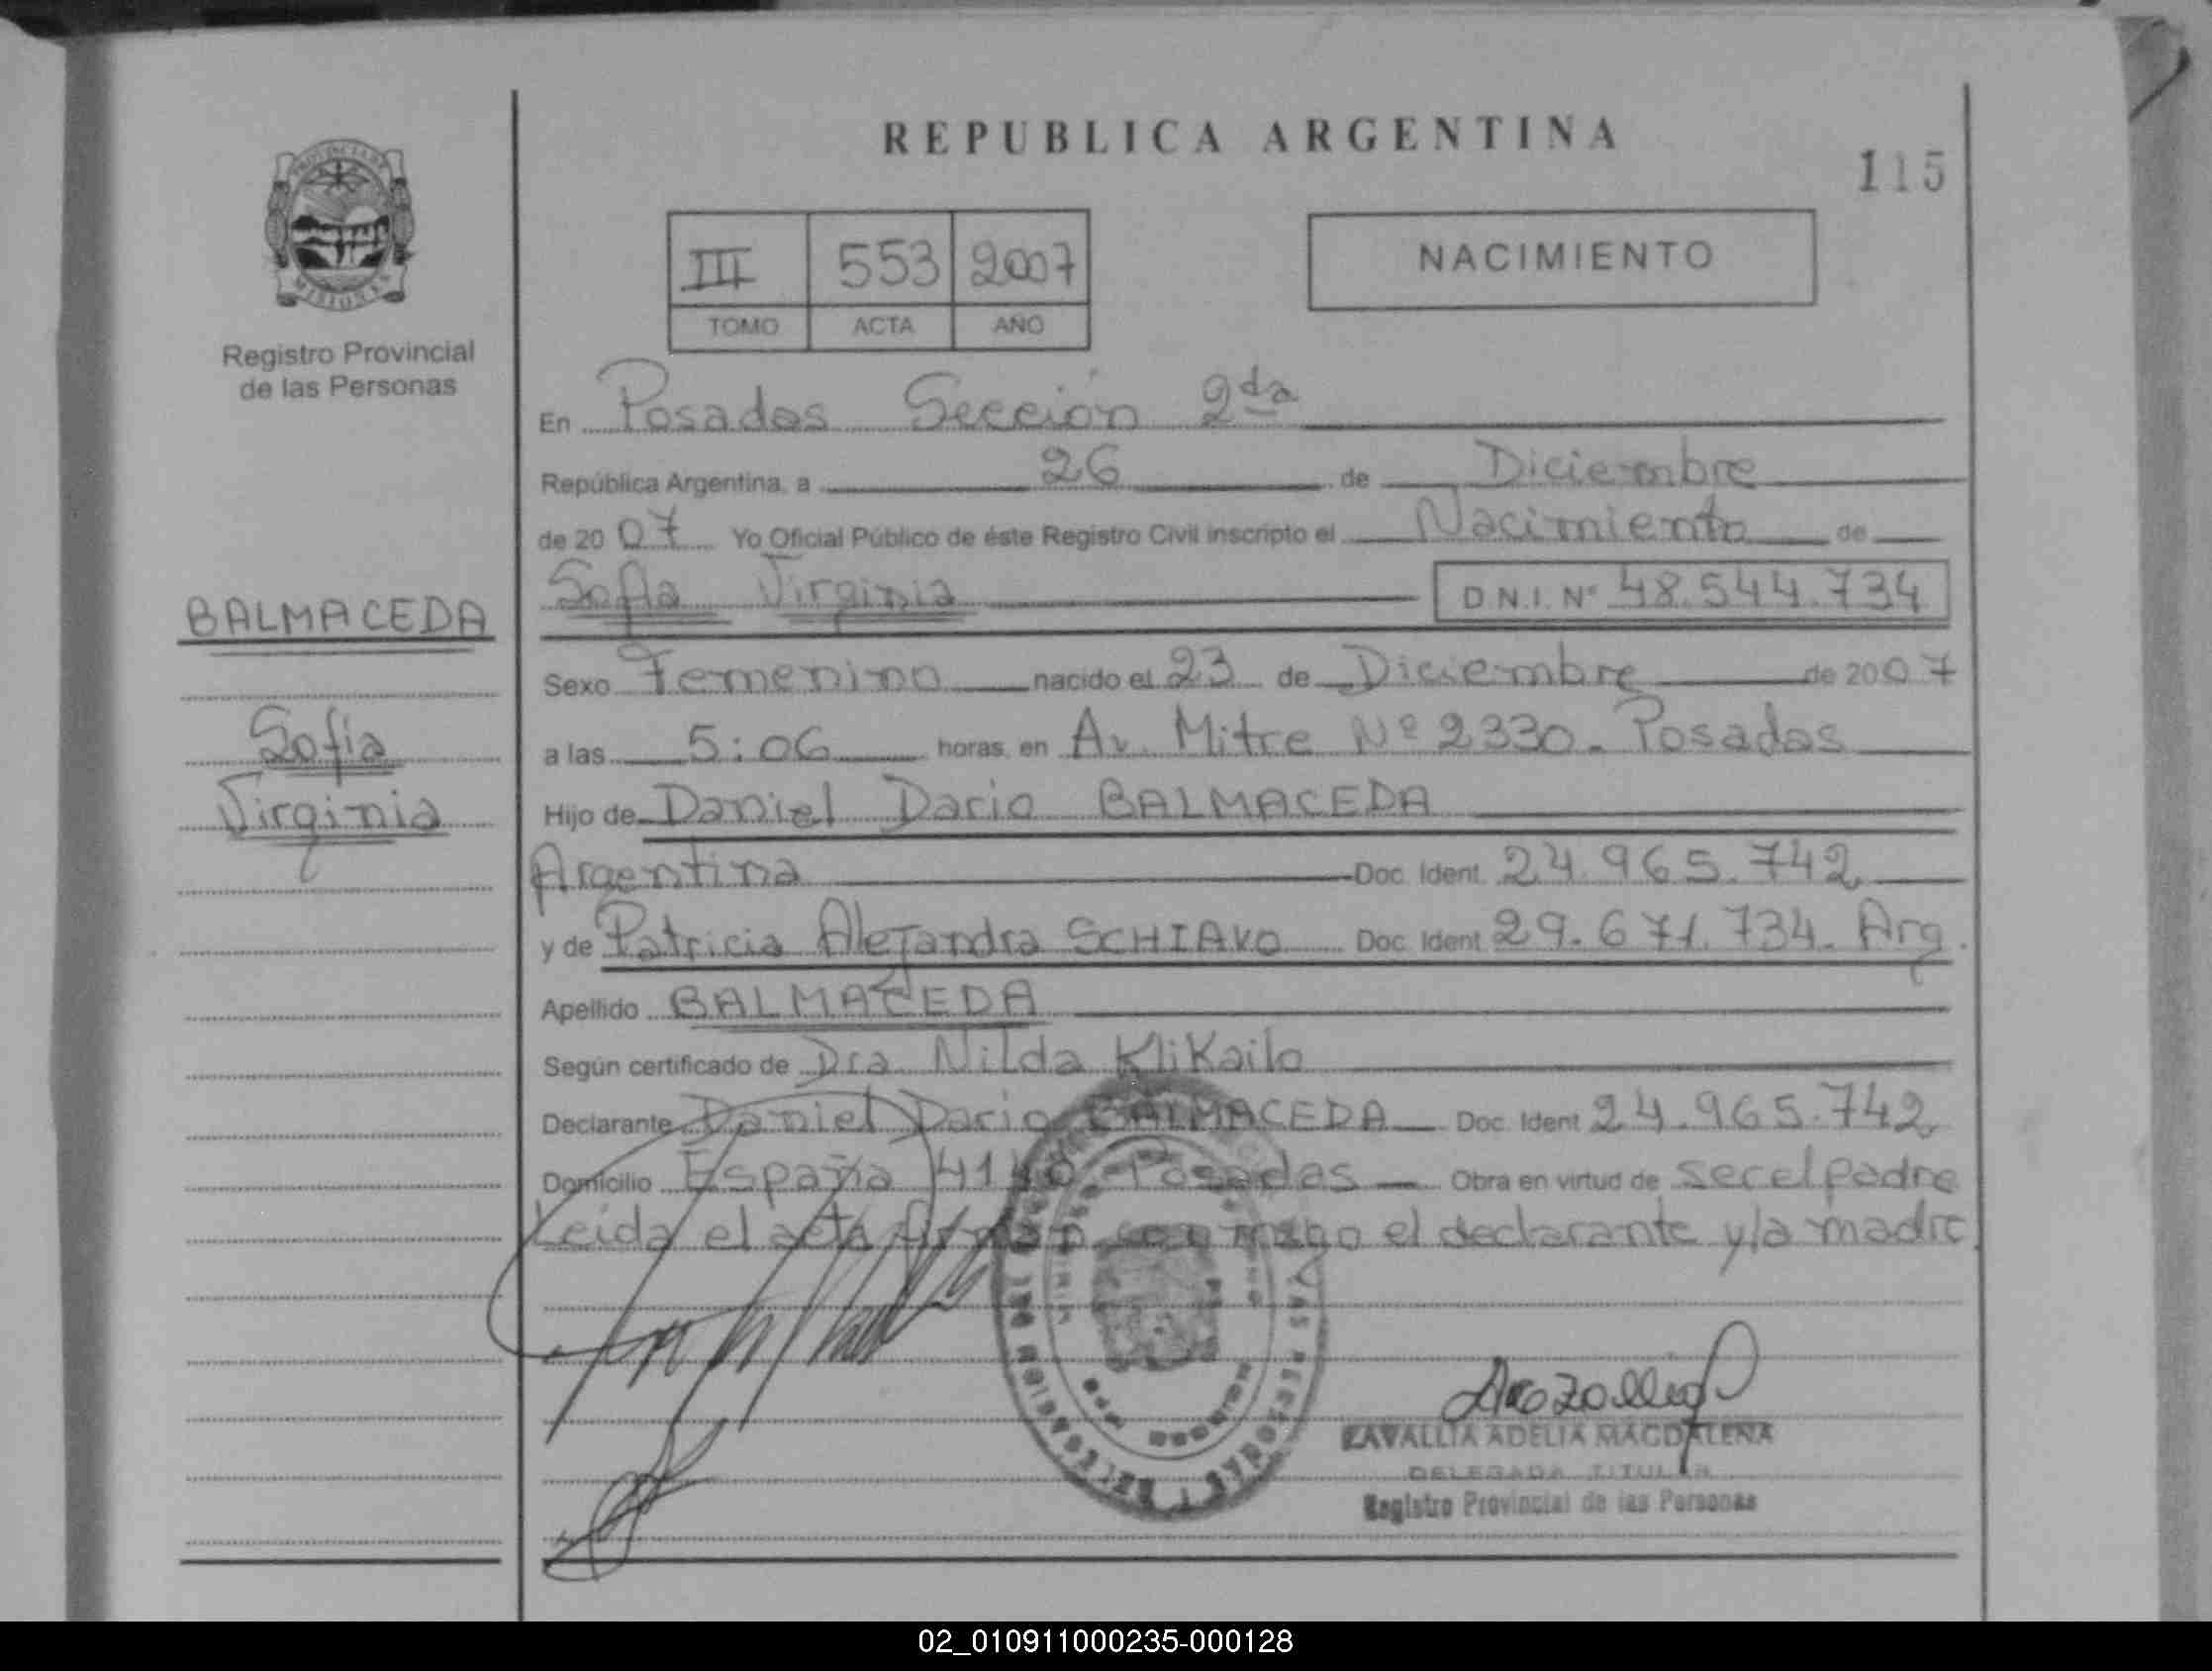 REPUBLICA ARGENTINA
115
PROVINCIA DE
MISIONES
Registro Provincial
de las Personas
III 553 2007
TOMO ACTA AÑO
NACIMIENTO
En Posadas Sección 2da
República Argentina, a 26 de Diciembre
de 2007 Yo Oficial Público de éste Registro Civil inscripto el Nacimiento de
Sofia Virginia D.N.I. Nº 48.544.734
BALMACEDA
Sofia
Virginia
Sexo Femenino nacido el 23 de Diciembre de 2007
a las 5:06 horas, en Av. Mitre Nº 2330. Posadas
Hijo de Daniel Dario BALMACEDA
Argentina Doc. Ident. 24.965.742
y de Patricia Alejandra SCHIAVO Doc. Ident. 29.671.734. Arg.
Apellido BALMACEDA
Según certificado de Dra. Nilda Klikailo
Declarante Daniel Dario BALMACEDA Doc. Ident. 24.965.742
Domicilio España Posadas Obra en virtud de ser el padre
Leida el acta firman conmigo el declarante y la madre
ZAVALLIA ADELIA MAGDALENA
DELEGADA TITULAR
Registro Provincial de las Personas
02_010911000235-000128